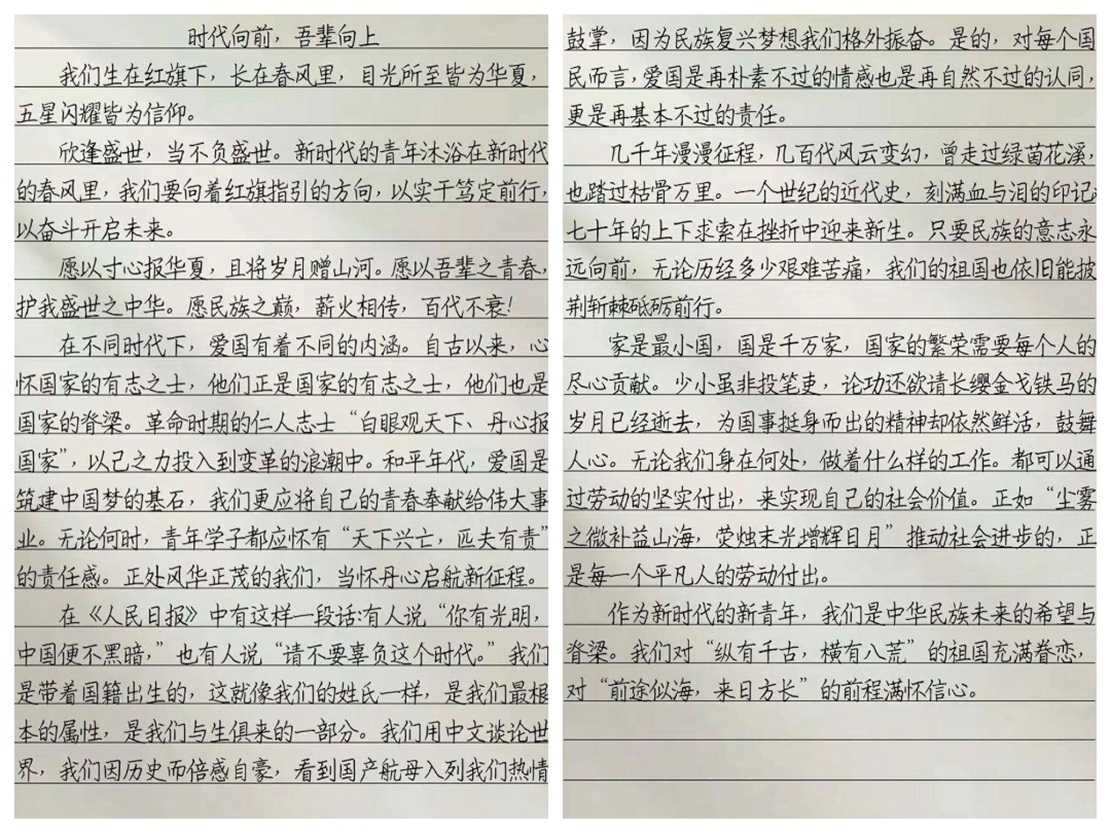 时代向前，吾辈向上
我们生在红旗下，长在春风里，目光所至皆为华夏，
五星闪耀皆为信仰。
欣逢盛世，当不负盛世。新时代的青年沐浴在新时代
的春风里，我们要向着红旗指引的方向，以实干笃定前行，
以奋斗开启未来。
愿以寸心报华夏，且将岁月赠山河。愿以吾辈之青春，
护我盛世之中华。愿民族之巅，薪火相传，百代不衰！
在不同时代下，爱国有着不同的内涵。自古以来，心
怀国家的有志之士，他们正是国家的有志之士，他们也是
国家的脊梁。革命时期的仁人志士“白眼观天下、丹心报
国家”，以己之力投入到变革的浪潮中。和平年代，爱国是
筑建中国梦的基石，我们更应将自己的青春奉献给伟大事
业。无论何时，青年学子都应怀有“天下兴亡，匹夫有责”
的责任感。正处风华正茂的我们，当怀丹心启航新征程。
在《人民日报》中有这样一段话：有人说“你有光明，
中国便不黑暗，”也有人说“请不要辜负这个时代。”我们
是带着国籍出生的，这就像我们的姓氏一样，是我们最根
本的属性，是我们与生俱来的一部分。我们用中文谈论世
界，我们因历史而倍感自豪，看到国产航母入列我们热情
鼓掌，因为民族复兴梦想我们格外振奋。是的，对每个国
民而言，爱国是再朴素不过的情感也是再自然不过的认同，
更是再基本不过的责任。
几千年漫漫征程，几百代风云变幻，曾走过绿茵花溪，
也踏过枯骨万里。一个世纪的近代史，刻满血与泪的印记；
七十年的上下求索在挫折中迎来新生。只要民族的意志永
远向前，无论历经多少艰难苦痛，我们的祖国也依旧能披
荆斩棘砥砺前行。
家是最小国，国是千万家，国家的繁荣需要每个人的
尽心贡献。少小虽非投笔吏，论功还欲请长缨金戈铁马的
岁月已经逝去，为国事挺身而出的精神却依然鲜活，鼓舞
人心。无论我们身在何处，做着什么样的工作。都可以通
过劳动的坚实付出，来实现自己的社会价值。正如“尘雾
之微补益山海，荧烛末光增辉日月”推动社会进步的，正
是每一个平凡人的劳动付出。
作为新时代的新青年，我们是中华民族未来的希望与
脊梁。我们对“纵有千古，横有八荒”的祖国充满眷恋，
对“前途似海，来日方长”的前程满怀信心。